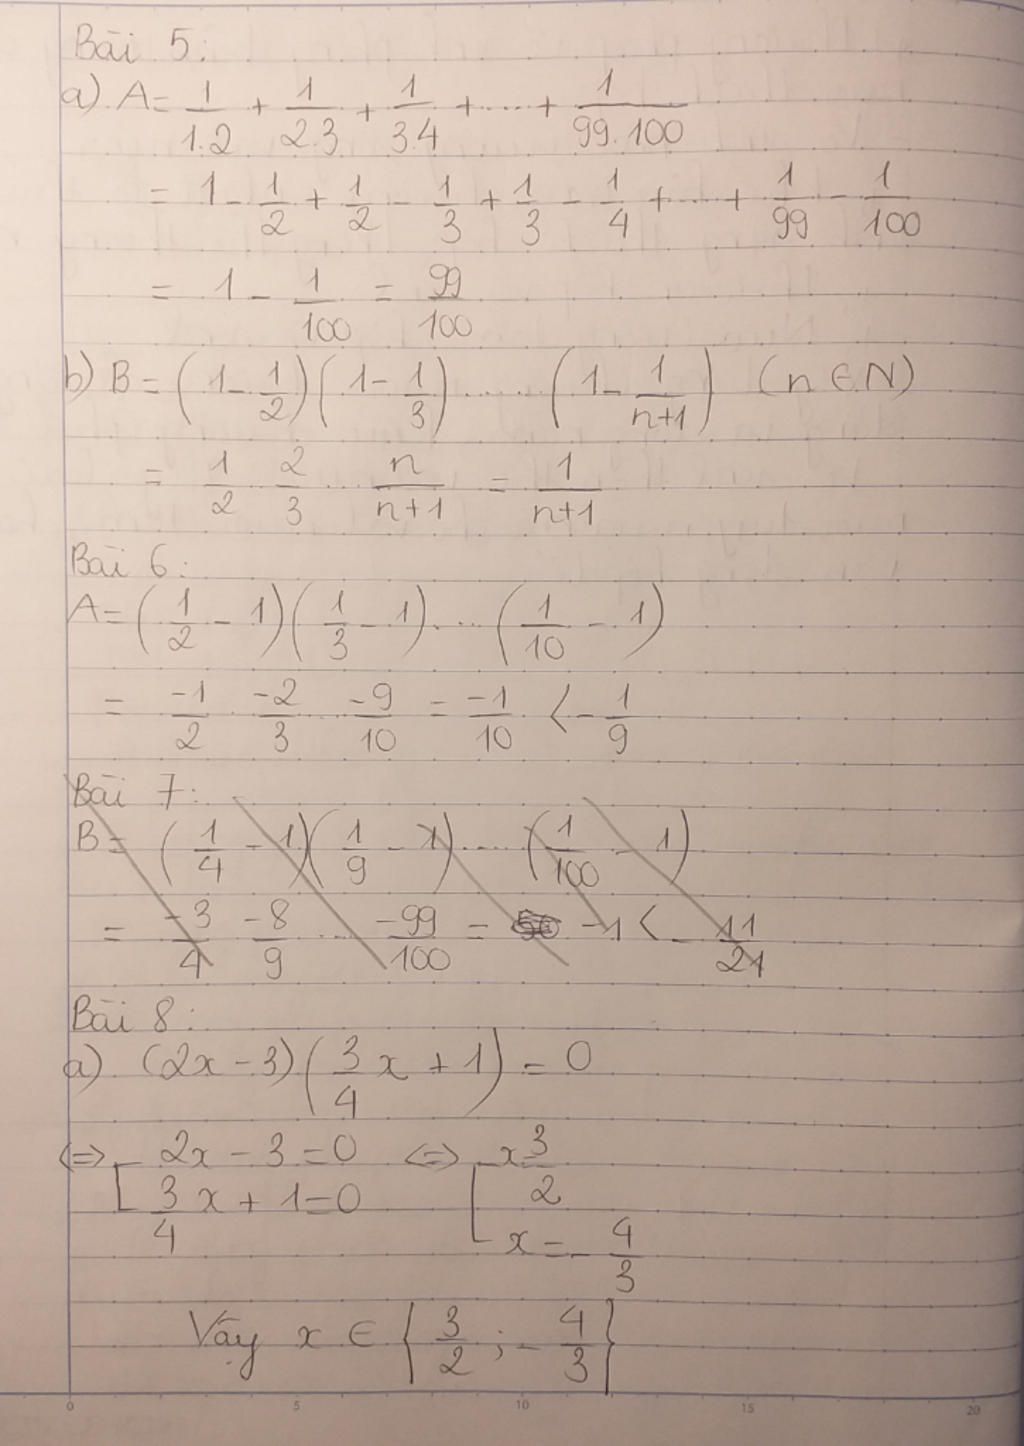 Bài 5:
a) A = 1/1.2 + 1/2.3 + 1/3.4 + .... + 1/99.100
= 1 - 1/2 + 1/2 - 1/3 + 1/3 - 1/4 + .... + 1/99 - 1/100
= 1 - 1/100 = 99/100
b) B = (1 - 1/2)(1 - 1/3) ...... (1 - 1/n+1) (n ∈ N)
= 1/2 . 2/3 ... n/n+1 = 1/n+1
Bài 6:
A = (1/2 - 1)(1/3 - 1) .... (1/10 - 1)
= -1/2 . -2/3 ... -9/10 = -1/10 < -1/9
Bài 7:
B = (1/4 - 1)(1/9 - 1) .... (1/100 - 1)
= -3/4 . -8/9 ... -99/100 = -1 < - 11/21
Bài 8:
a) (2x - 3)(3/4 x + 1) = 0
<=> [ 2x - 3 = 0 <=> [ x = 3/2
3/4 x + 1 = 0 x = - 4/3
Vậy x ∈ {3/2 ; - 4/3}
0 5 10 15 20